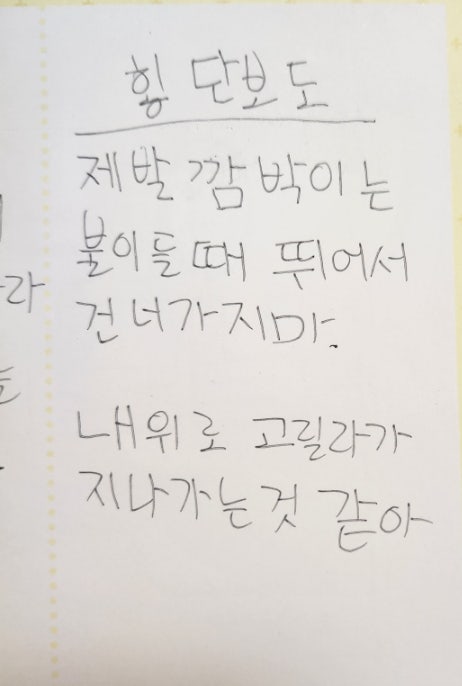 횡단보도
제발 깜박이는
불이들때 뛰어서
건너가지마.
내위로 고릴라가
지나가는것 같아
라